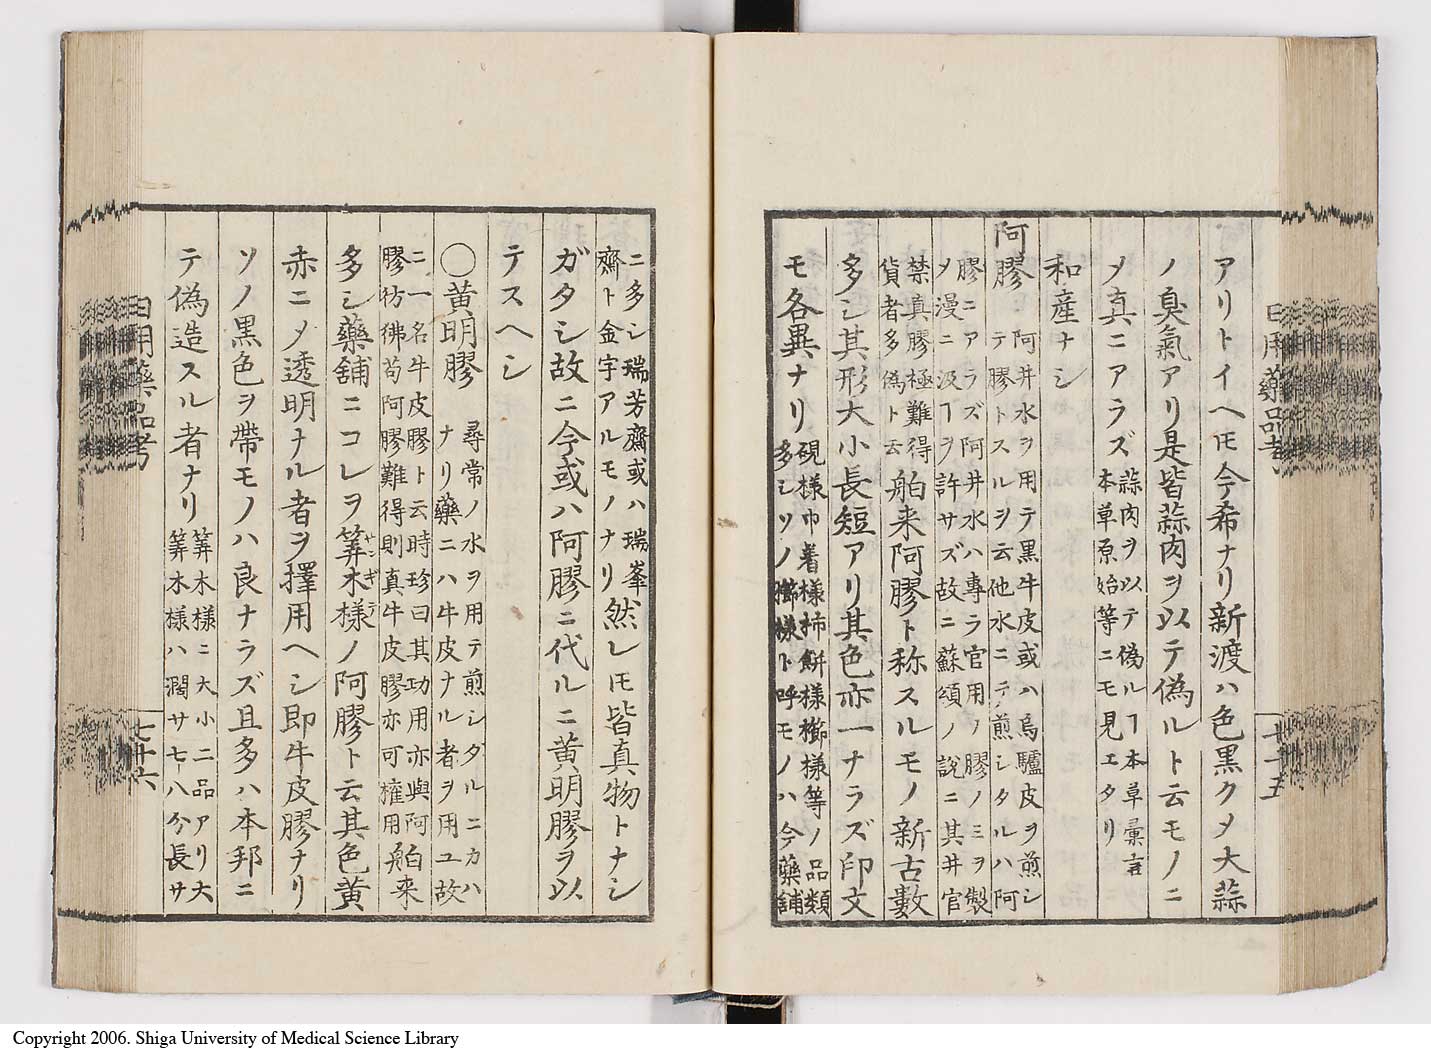 アリトイヘ𪜈今希ナリ新渡ハ色黒クメ大蒜
ノ臭氣アリ是皆蒜肉ヲ以テ偽ルト云モノニ
メ真ニアラズ蒜肉ヲ以テ偽ルヿ本草彙言
本草原始等ニモ見エタリ
和産ナシ
阿膠 阿井水ヲ用テ黒牛皮或ハ烏驢皮ヲ煎シ
テ膠トスルヲ云他水ニテ煎シタルハ阿
膠ニアラズ阿井水ハ專ラ官用ノ膠ノミヲ製
メ漫ニ汲ヿヲ許サズ故ニ蘇頌ノ説ニ其井官
禁真膠極難得
貨者多偽ト云舶来阿膠ト称スルモノ新古數
多シ其形大小長短アリ其色亦一ナラズ印文
モ各異ナリ硯様巾着様柿餅様櫛様等ノ品類
多シソノ櫛様ト呼モノハ今藥舗
日用藥品考
七十五
ニ多シ瑞芳齋或ハ瑞峯
齋ト金字アルモノナリ然レ𪜈皆真物トナシ
ガタシ故ニ今或ハ阿膠ニ代ルニ黄明膠ヲ以
テスヘシ
〇黄明膠 尋常ノ水ヲ用テ煎シタルニカハ
ナリ藥ニハ牛皮ナル者ヲ用ユ故
ニ一名牛皮膠ト云時珍曰其功用亦與阿
膠彷彿苟阿膠難得則真牛皮膠亦可權用舶来
多シ藥舗ニコレヲ筭木様ノ阿膠ト云其色黄
サンギテ
赤ニメ透明ナル者ヲ擇用ヘシ即牛皮膠ナリ
ソノ黒色ヲ帯モノハ良ナラズ且多ハ本邦ニ
テ偽造スル者ナリ筭木様ニ大小二品アリ大
筭木様ハ濶サ七八分長サ
日用藥品考
七十六
Copyright 2006. Shiga University of Medical Science Library